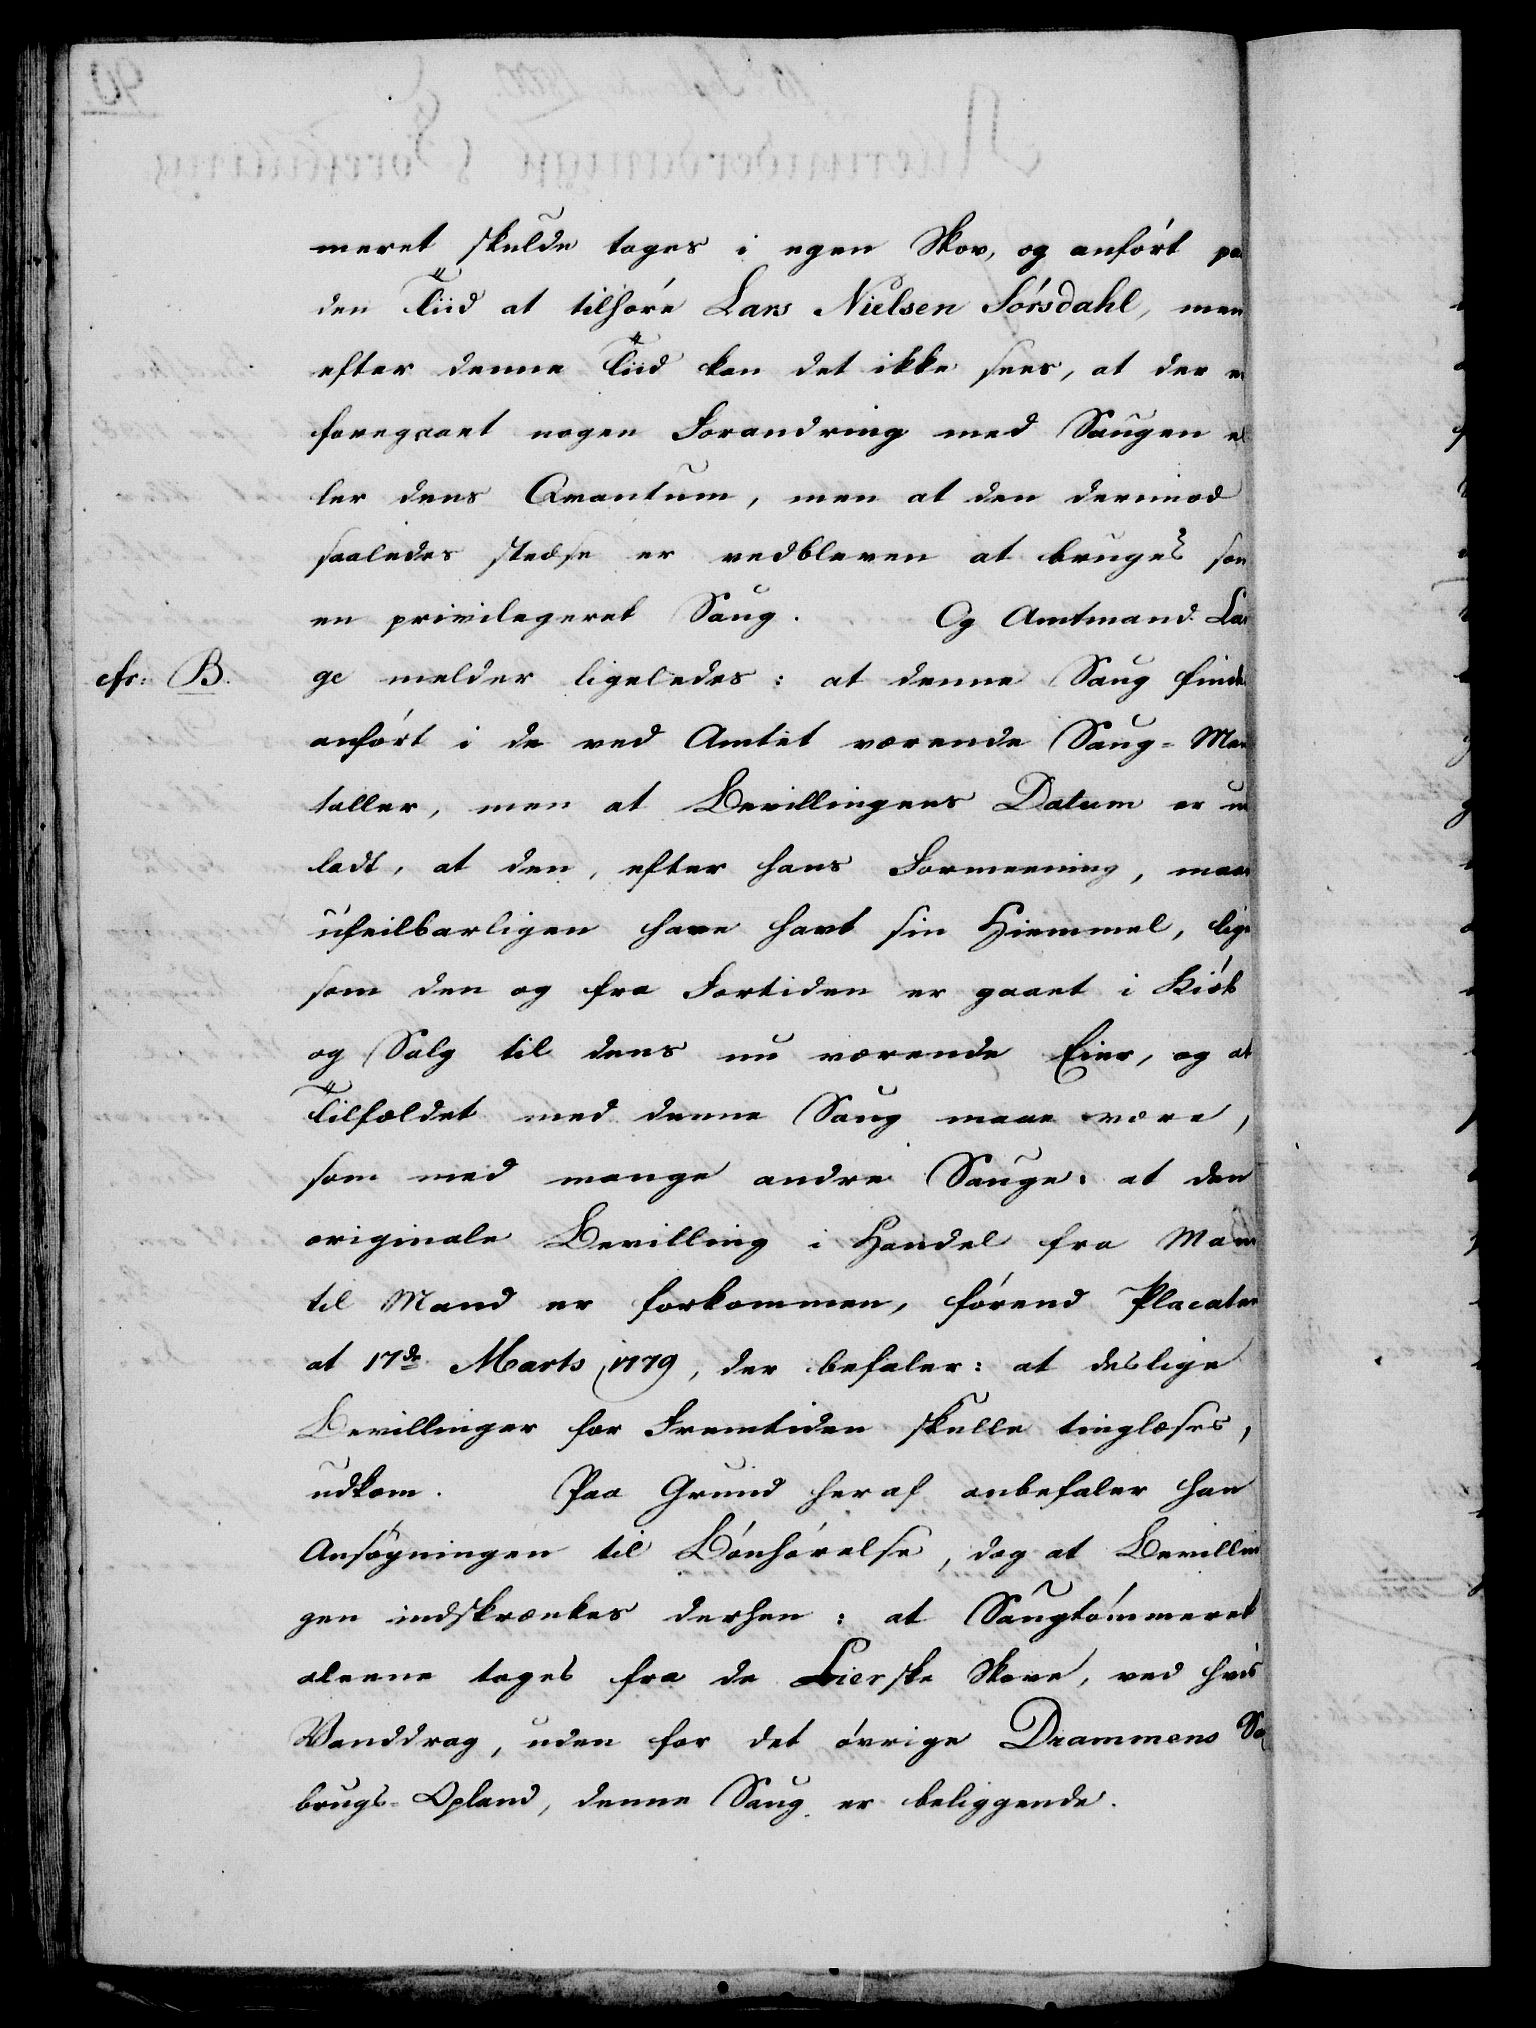 meret skulde tages i egen Skov, og anført paa
den Tiid at tilhøre Lars Nielsen Sørsdahl, men
efter denne Tiid kan det ikke sees, at der er
foregaaet nogen Forandring med Saugen el
ler dens Qvantum, men at den derimod
saaledes stedse er vedbleven at bruges som
en privilegeret Saug. Og Amtmand La
cfr: B. ge melder ligeledes: at denne Saug findes
anført i de ved Amtet værende Saug-Man
taller, men at Bevillingens Datum er u
ladt, at den, efter hans Formeening, maae
ufeilbarligen have havt sin Hiemmel, lige
som den og fra Fortiden er gaaet i Kiøb
og Salg til dens nu værende Eier, og at
Tilfældet med denne Saug maae være,
som med mange andre Sauge: at den
originale Bevilling i Handel fra Mand
til Mand er forkommen, førend Placaten
af 17de Marts 1779, der befaler: at deslige
Bevillinger for Fremtiden skulle tinglæses,
udkom. Paa Grund heraf anbefaler han
Ansøgningen til Bønhørelse, dog at Bevillin
gen indskrænkes derhen: at Saugtømmeret
aleene tages fra de Lierske Skove, ved hvis
Vanddrag, uden for det øvrige Drammens Sa
brugs-Opland, denne Saug er beliggende.